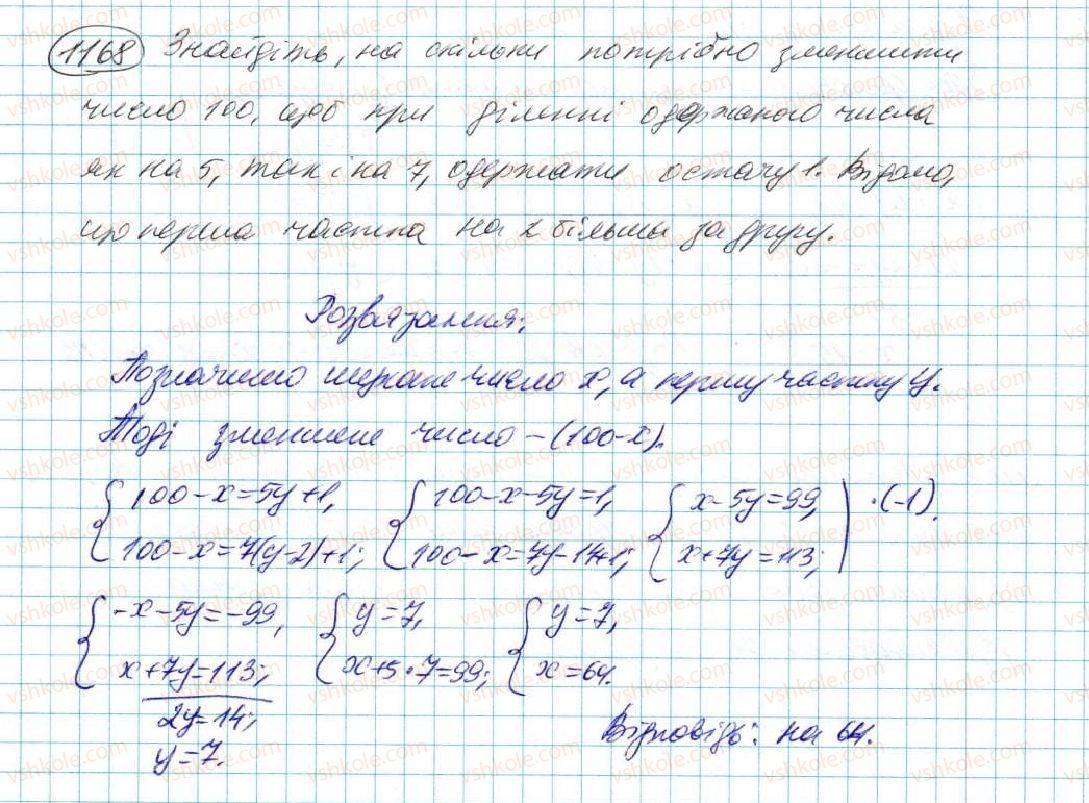 1168 Знайдіть, на скільки потрібно зменшити
число 100, щоб при діленні одержаного числа
як на 5, так і на 7, одержати остачу 1. Відомо,
що перша частка на 2 більша за другу.
Розв'язання:
Позначимо шукане число x, а першу частку y.
Тоді зменшене число – (100-x).
{100-x=5y+1, {100-x-5y=1, {x-5y=99, | ·(-1).
{100-x=7(y-2)+1; {100-x=7y-14+1; {x+7y=113;
{-x-5y=-99, {y=7, {y=7,
{x+7y=113; {x+5·7=99; {x=64.
2y=14;
y=7.
Відповідь: на 64.
vshkole.com